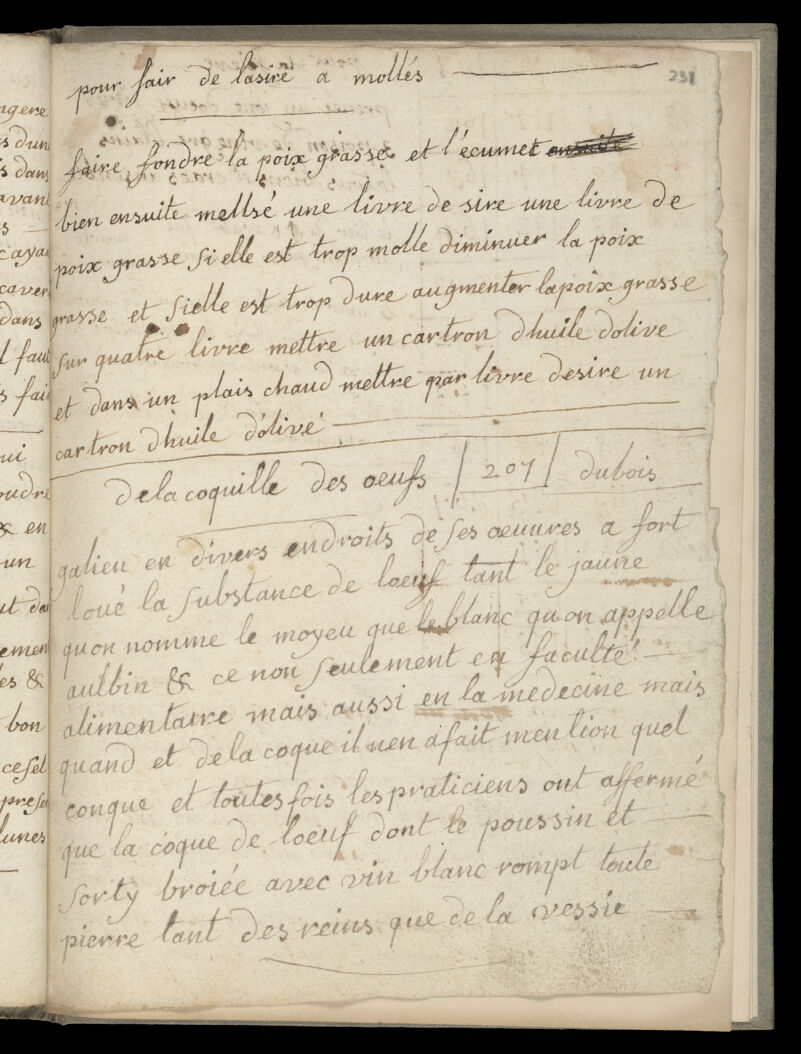 pour fair de lasire a mollés
231
faire fondre la poix grasse et l'écumet ensuite
bien ensuite mellsé une livre de sire une livre de
poix grasse si elle est trop molle diminuer la poix
grasse et sielle est trop dure augmenter lapoix grasse
sur quatre livre mettre un cartron dhuile dolive
et dans un plais chaud mettre par livre desire un
cartron dhuile dolivé
delacoquille des oeufs | 207 | dubois
galien en divers endroits de ses oeuures a fort
loué la substance de loeuf tant le jaune
quon nomme le moyeu que le blanc quon appelle
aulbin & ce non seulement en faculté
alimentaire mais aussi en la medecine mais
quand et delacoque il nen afait mention quel
conque et toutesfois lespraticiens ont affermé
que la coque de loeuf dont le poussin et
sorty broiée avec vin blanc rompt toute
pierre tant des reins que de la vessie
ngere
s dun
s dans
avant
s
caver
dans
l faut
s fai
ui
oudre
& en
un
ut da
emen
es &
bon
cesel
prese
lunes